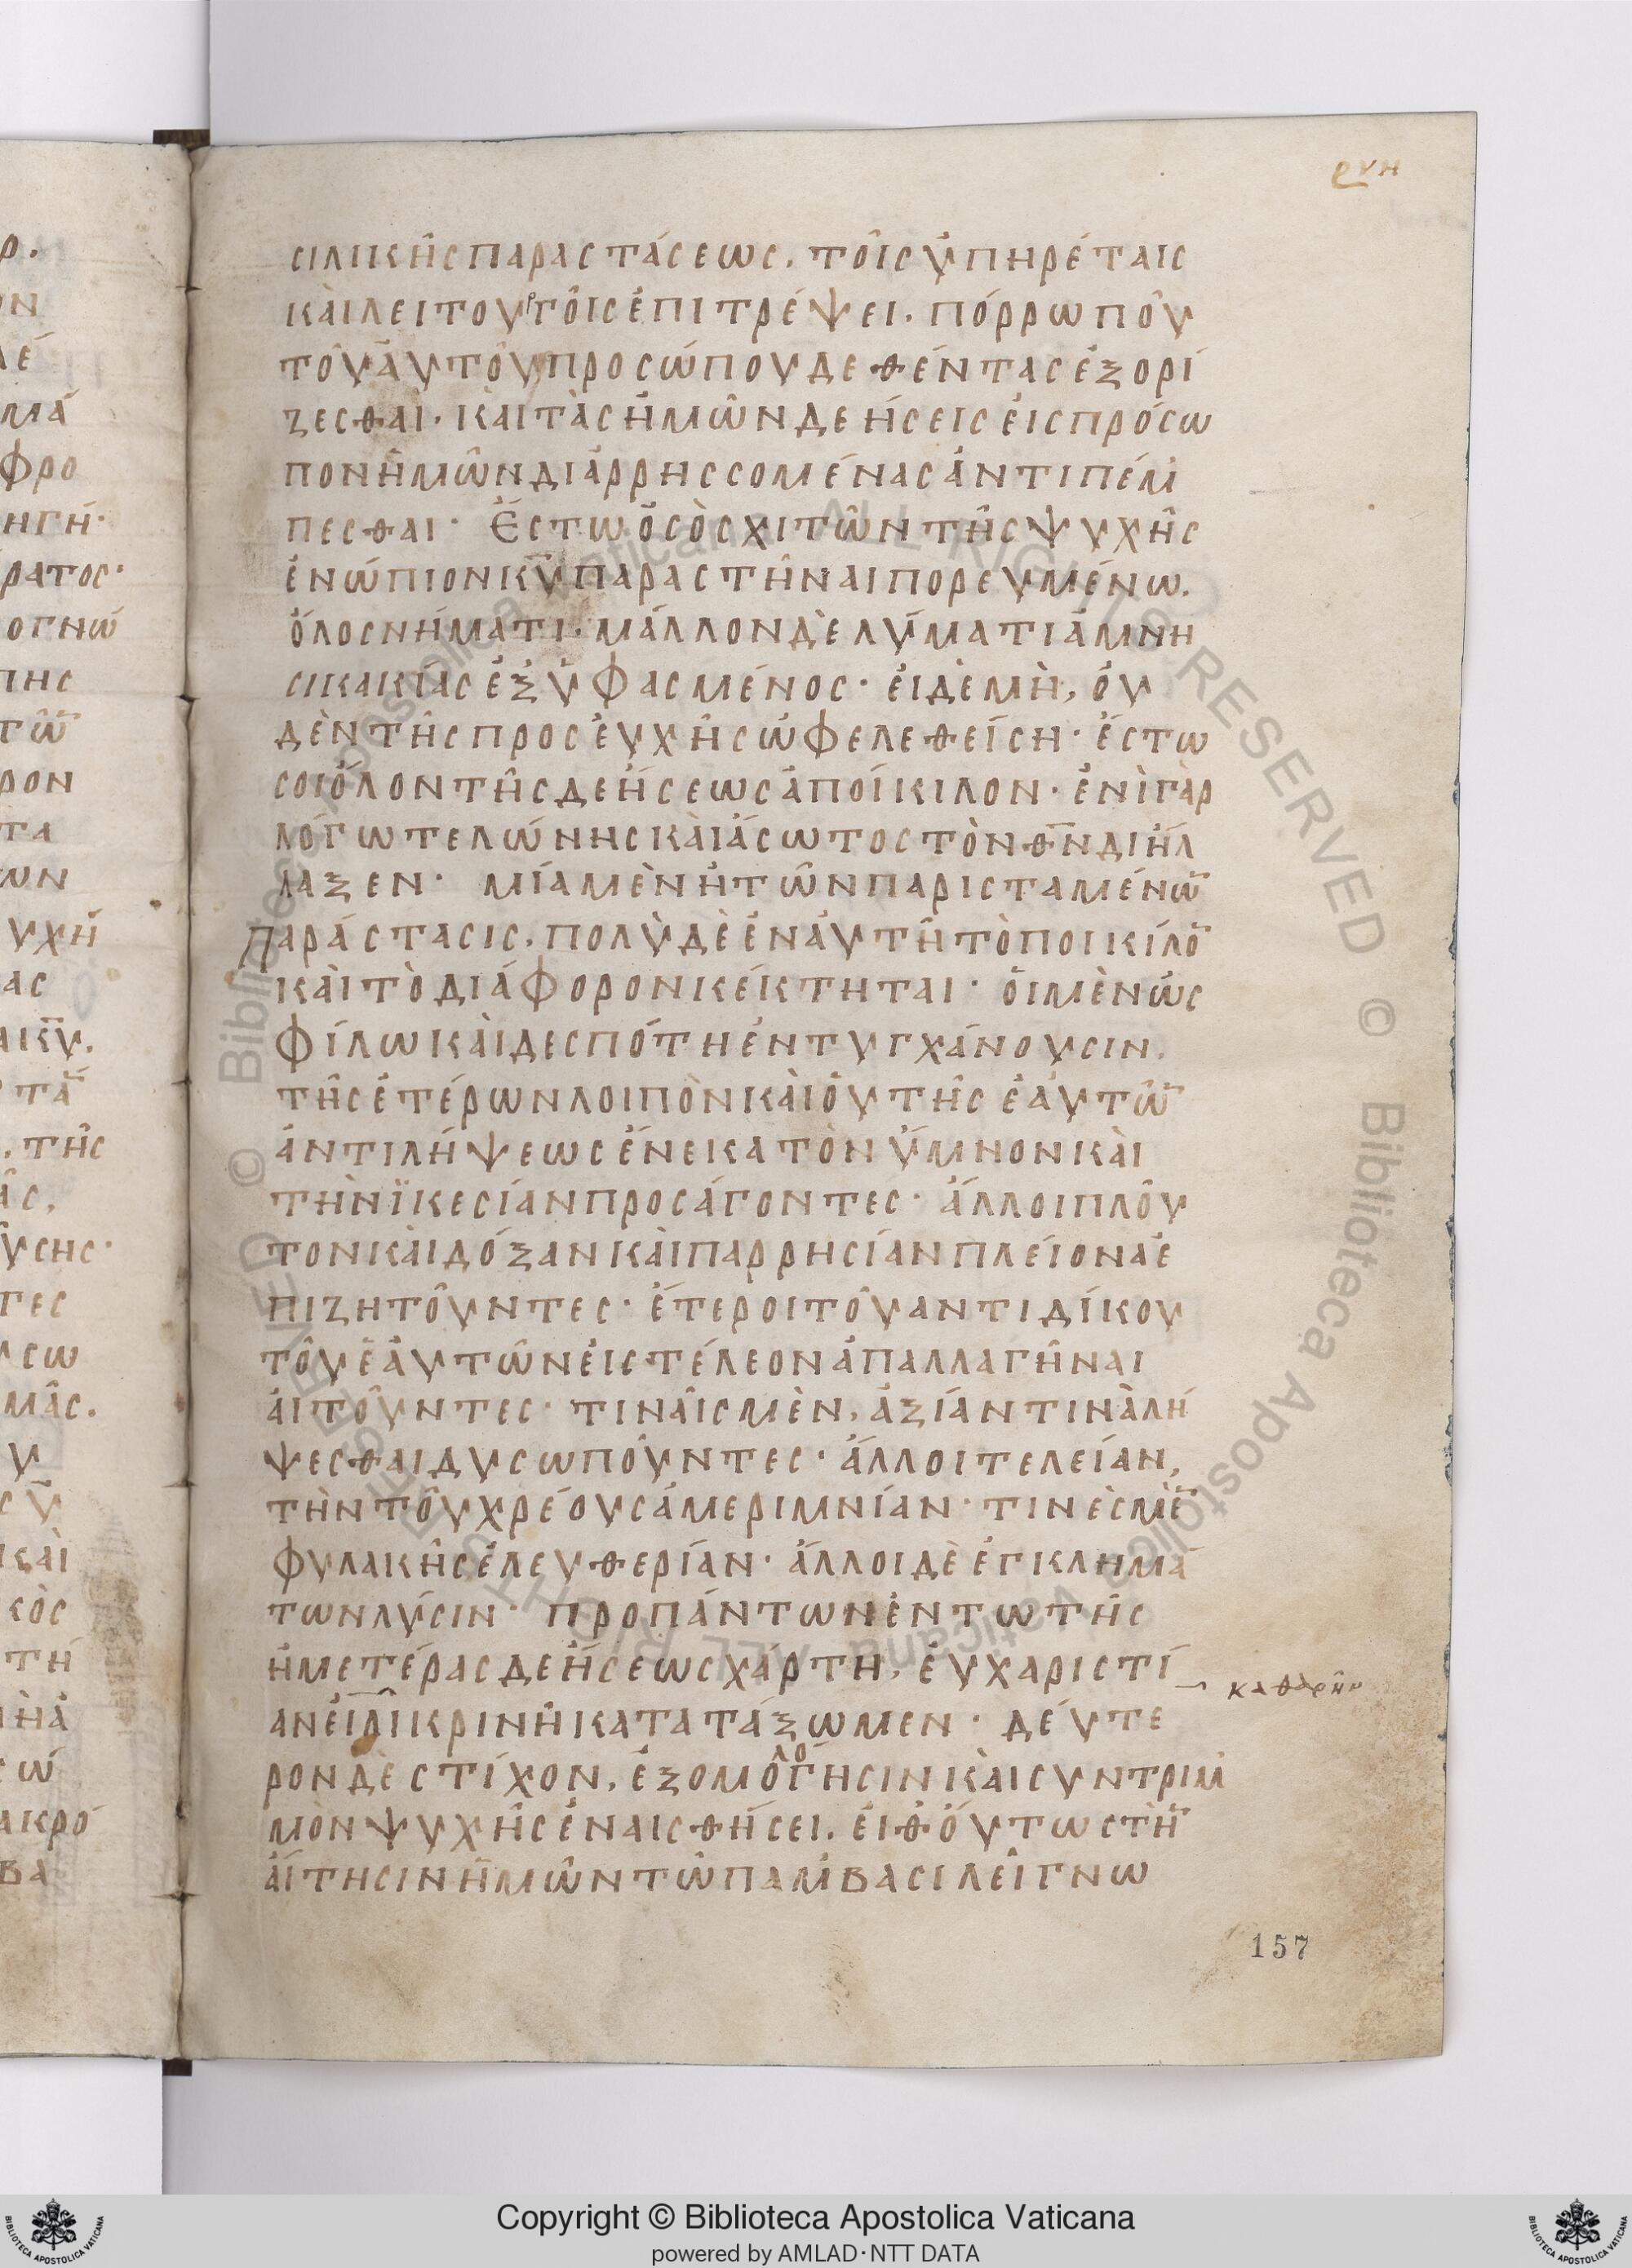 ρνη
σιλικῆς παραστάσεως. τοῖς ὑπηρέταις
καὶ λειτουργοῖς ἐπιτρέψει. πόρρω ποῦ
τοῦ ἀυτοῦ προσώπου δεθέντας ἐξορί
ζεσθαι. καὶ τὰς ἡμῶν δεήσεις ἐις πρόσω
πον ἡμῶν διἀρρησσομένας ἀντιπέμ
πεσθαι· Ἔστω ὁ σὸς χιτῶν τῆς ψυχῆς
ἐνώπιον κ̅υ̅ παραστῆναι πορευμένω.
ὅλος νήματι. μᾶλλον δὲ λύματι ἀμνη
σικακίας ἐξυφασμένος· ἐι δὲ μὴ, ὀυ
δὲν τῆς προσἐυχῆς ὠφελεθείση· ἔστω
σοι ὅλον τῆς δεήσεως ἀποίκιλον· ἑνὶ γὰρ
λόγω τελώνης καὶ ἄσωτος τὸν θ̅ν̅ διήλ
λαξεν· μία μὲν ἡ τῶν παρισταμένω̅
παράστασις. πολὺ δὲ ἐν ἀυτῆ τὸ ποικίλο̅
καὶ τὸ διάφορον κέκτηται· ὁι μὲν ὡς
φίλω καὶ δεσπότη ἐντυγχάνουσιν.
τῆς ἑτέρων λοιπὸν καὶ ὀυ τῆς ἑαυτῶ̅
ἀντιλήψεως ἕνεκα τὸν ὕμνον καὶ
τὴν ϊκεσίαν προσάγοντες· ἄλλοι πλοῦ
τον καὶ δόξαν καὶ παρρησίαν πλείονα ἐ
πιζητοῦντες· ἕτεροι τοῦ αντιδίκου
τοῦ ἑἀυτῶν ἐις τέλεον ἀπαλλαγῆναι
ἀιτοῦντες· τιναῖς μὲν, ἀξίαν τινὰ λή
ψεσθαι δυσωποῦντες· ἄλλοι τελείαν,
τὴν τοῦ χρέους ἀμεριμνίαν· τινὲς μὲ̅
φυλακῆς ἐλευθερίαν· ἄλλοι δὲ ἐγκλημά
των λύσιν· προπάντων ἐν τω τῆς
ἡμετέρας δεήσεως χάρτη, ἐυχαριστί
καθαρῆν
αν ἐιλικρινῆ κατατάξωμεν· δέυτε
ρον δὲ στίχον, ἐξομολόγησιν καὶ συντριμ
μὸν ψυχῆς ἐν αισθήσει. ἐιθ ὀύτως τὴ̅
ἄιτησιν ἡμῶν τῶ παμβασιλεῖ γνω
157
Copyright © Biblioteca Apostolica Vaticana
powered by AMLAD·NTT DATA